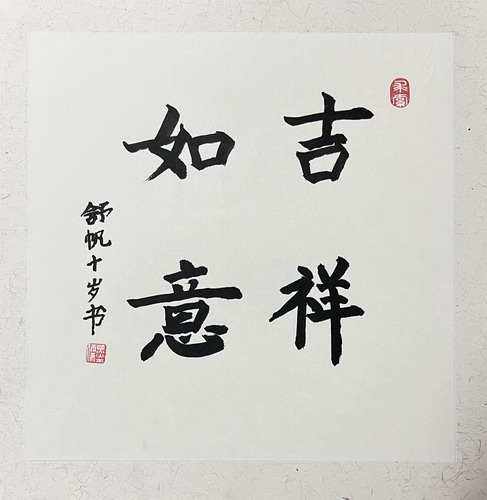 吉祥
如意
舒帆十岁书